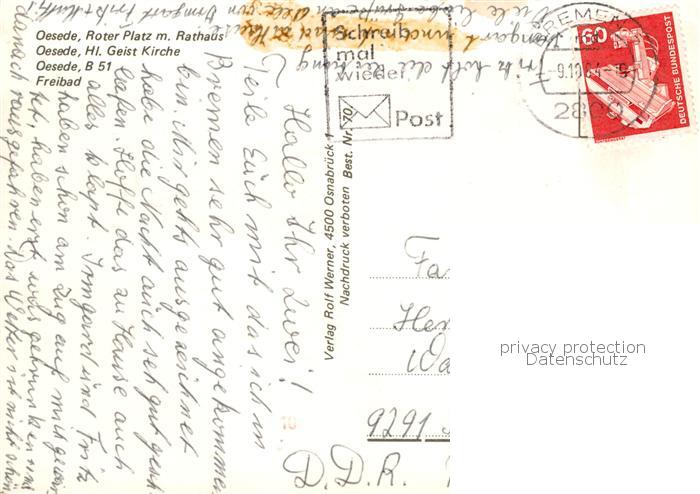 Oesede, Roter Platz m. Rathaus
Oesede, Hl. Geist Kirche
Oesede, B 51
Freibad
Schreib
mal
wieder
Post
BREMEN
-9.10.84-
280
60
DEUTSCHE BUNDESPOST
Verlag Rolf Werner, 4500 Osnabrück 1
Nachdruck verboten Best. Nr. 70
Hallo Ihr zwei!
Teile Euch mit das ich in
Bremen sehr gut angekommen
bin. Mir gehts ausgezeichnet
habe die Nacht auch sehr gut gesch
lafen. Hoffe das zu Hause auch
alles klapt. Irmgard und Fritz
haben schon am Zug auf mich gewar
tet, haben erst was getrunken und
danach rausgefahren. Das Wetter ist nicht schön.
Fa
Her
Wa
9291
D.D.R.
privacy protection
Datenschutz